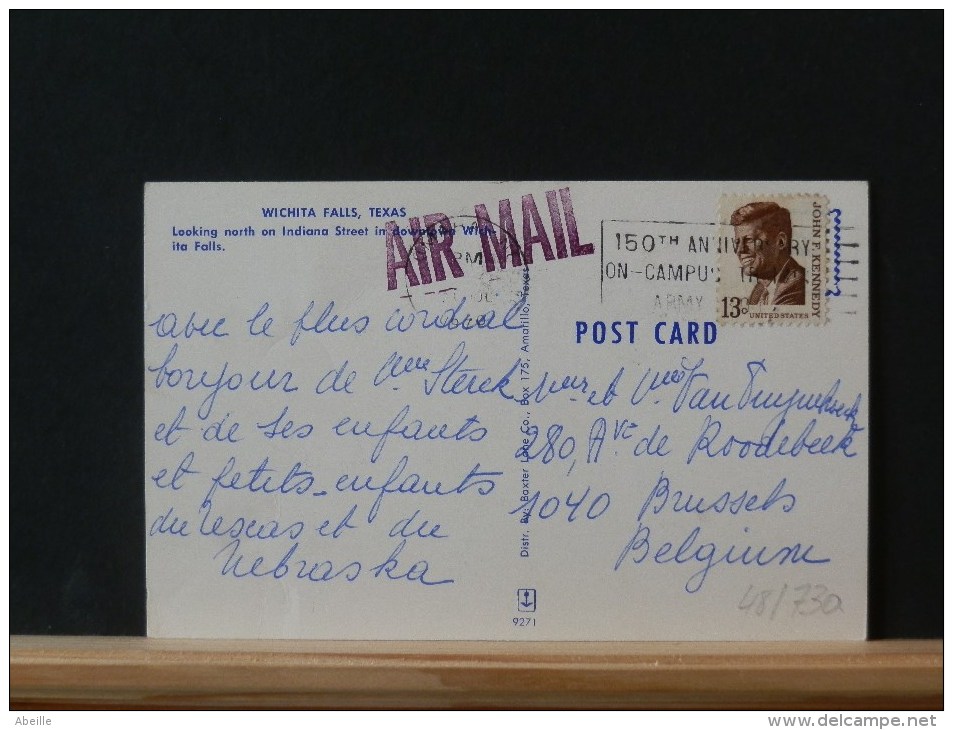 WICHITA FALLS, TEXAS
Looking north on Indiana Street in downtown Wich-
ita Falls.
AIR MAIL
PM
150TH ANNIVERSARY
ON-CAMPUS
ARMY
JOHN F. KENNEDY
13c
UNITED STATES
POST CARD
avec le plus cordial
bonjour de Mme Sterck
et de ses enfants
et petits-enfants
du Texas et du
Nebraska
Distr. By: Baxter Lane Co., Box 175, Amarillo, Texas
Mr et Mme
280, Ave de Roodebeek
1040 Brussels
Belgium
48/730
9271
Abeille
delcampe.net